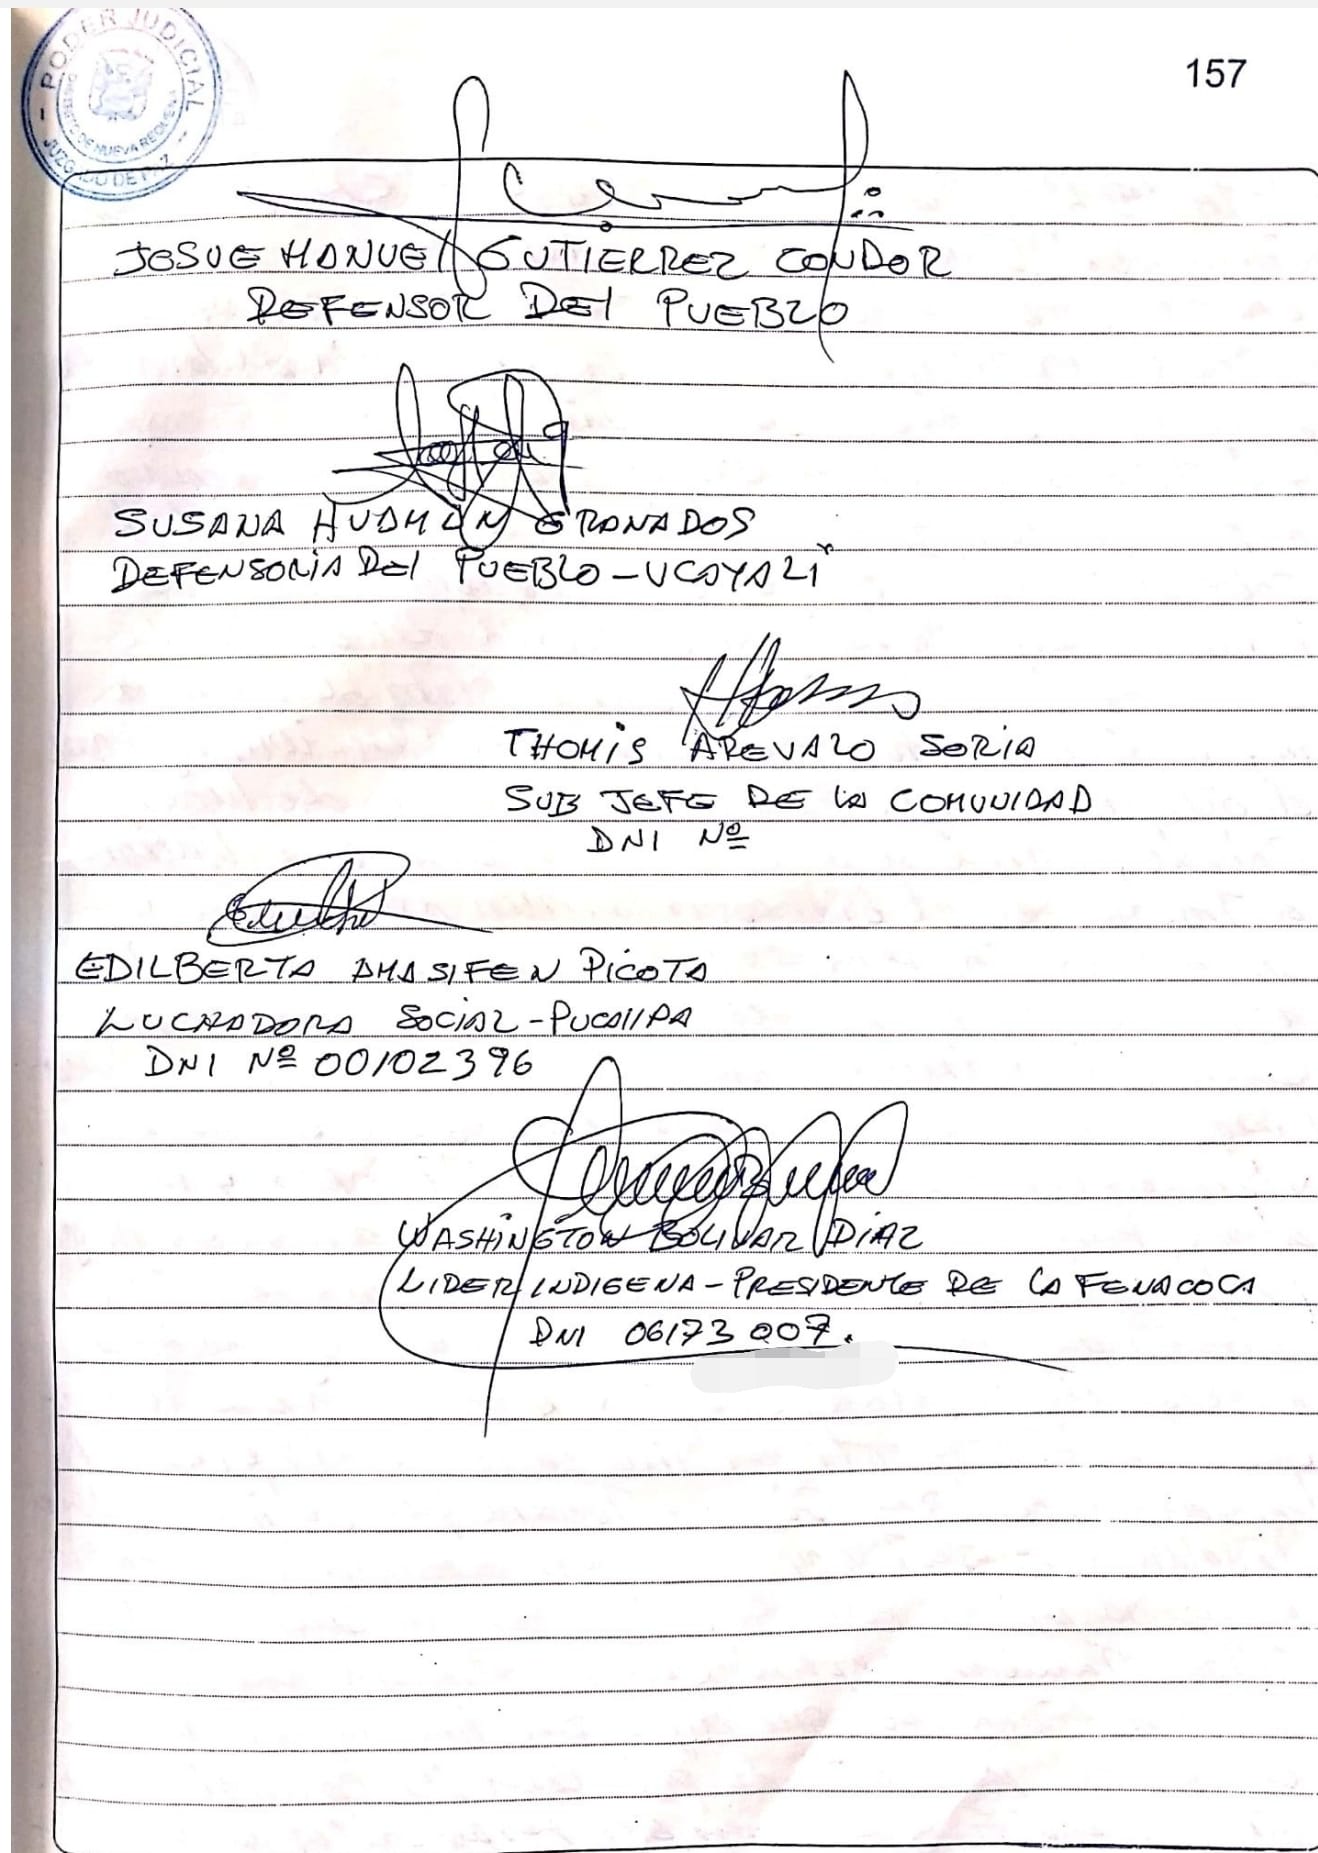 PODER JUDICIAL
DE NUEVA REQUENA
JUZGADO DE PAZ
157
JOSUE MANUEL GUTIERREZ CONDOR
DEFENSOR DEL PUEBLO
SUSANA HUAMAN GRANADOS
DEFENSORIA DEL PUEBLO - UCAYALI
THOMIS AREVALO SORIA
SUB JEFE DE LA COMUNIDAD
DNI Nº
EDILBERTA AMASIFEN PICOTA
LUCHADORA SOCIAL - PUCALLPA
DNI Nº 00102396
WASHINGTON BOLIVAR DIAZ
LIDER INDIGENA - PRESIDENTE DE LA FENACOCA
DNI 06173007.